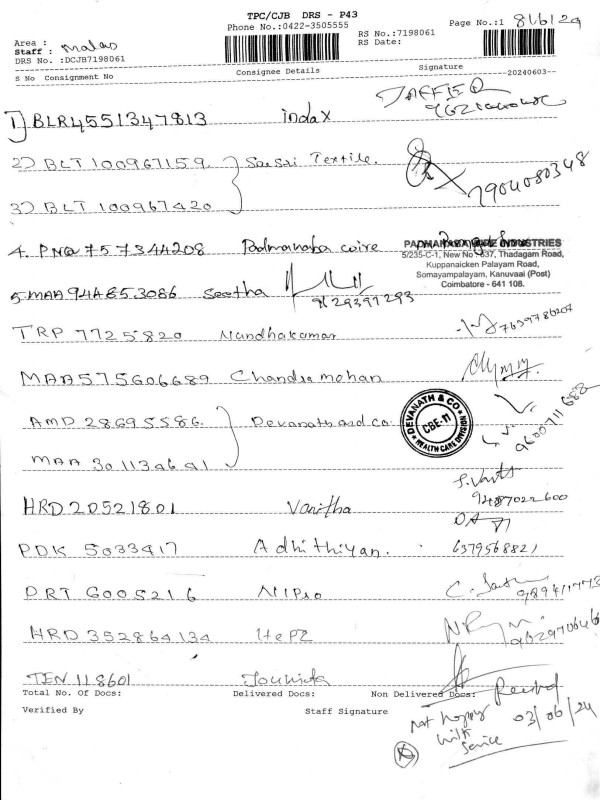 TPC/CJB DRS - P43
Phone No.:0422-3505555
Page No.:1 8/6/24
RS No.:7198061
RS Date:
Area :
Staff :
DRS No. :DCJB7198061
S No Consignment No Consignee Details Signature 20240603--
1) BLR4551347813 indax
2) BLT 100967159 SaiSri Textile. 7904080348
3) BLT 100967420
4. PNQ 757344208 Padmanaba coire
PADMANABA COIRE INDUSTRIES
5/235-C-1, New No. 637, Thadagam Road,
Kuppanaicken Palayam Road,
Somayampalayam, Kanuvaai (Post)
Coimbatore - 641 108.
5. MAA 944653086 Seetha 9629397293
TRP 7725820 Nandhakumar
MAA575606689 Chandra mohan
AMD 28695586 Devanath and co
DEVANATH & CO
CBE-11
HEALTH CARE DIVISION
9600711682
MAA 301134641
HRD20521801 Vanitha 9487022600
PDK 5033417 Adhithiyan. 6379568821
PRT G005216 NIPro
HRD 352864134 HePZ
TEN 118601
Total No. Of Docs: Delivered Docs: Non Delivered Docs:
Received
03/06/24
Verified By Staff Signature
not happy
with
service